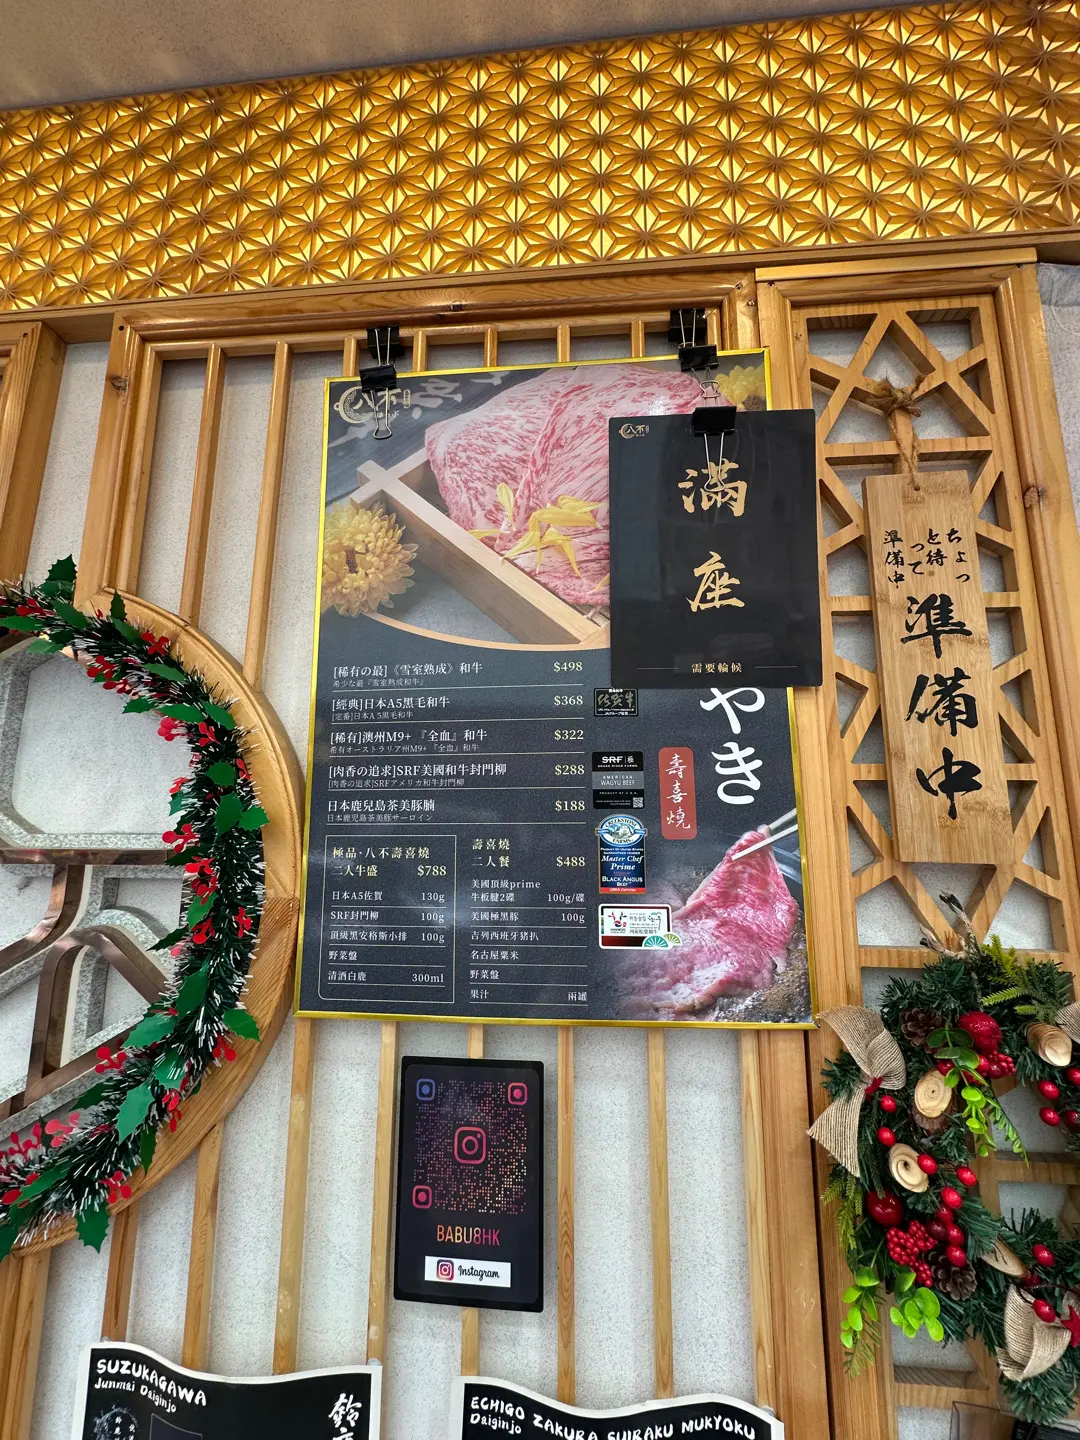 八不
滿座
需要輪候
ちょっ
と待
って
準備中
準備中
[稀有の最]《雪室熟成》和牛 $498
希少な最『雪室熟成和牛』
[經典]日本A5黑毛和牛 $368
[定番]日本A5黒毛和牛
[稀有]澳州M9+『全血』和牛 $322
希有オーストラリア州M9+『全血』和牛
[肉香の追求]SRF美國和牛封門柳 $288
[肉香の追求]SRFアメリカ和牛封門柳
日本鹿兒島茶美豚腩 $188
日本鹿児島茶美豚サーロイン
やき
壽喜燒
極品·八不壽喜燒
二人牛盛 $788
日本A5佐賀 130g
SRF封門柳 100g
頂級黑安格斯小排 100g
野菜盤
清酒白鹿 300ml
壽喜燒
二人餐 $488
美國頂級prime
牛板腱2碟 100g/碟
美國極黑豚 100g
古列西班牙豬扒
名古屋粟米
野菜盤
果汁 兩罐
佐賀牛
SRF 極
AMERICAN
WAGYU BEEF
CREEKSTONE
FARMS
Master Chef
Prime
BLACK ANGUS
BEEF
BABU8HK
Instagram
SUZUKAGAWA
Junmai Daiginjo
鈴
ECHIGO ZAKURA SUIRAKU MUKYOKU
Daiginjo